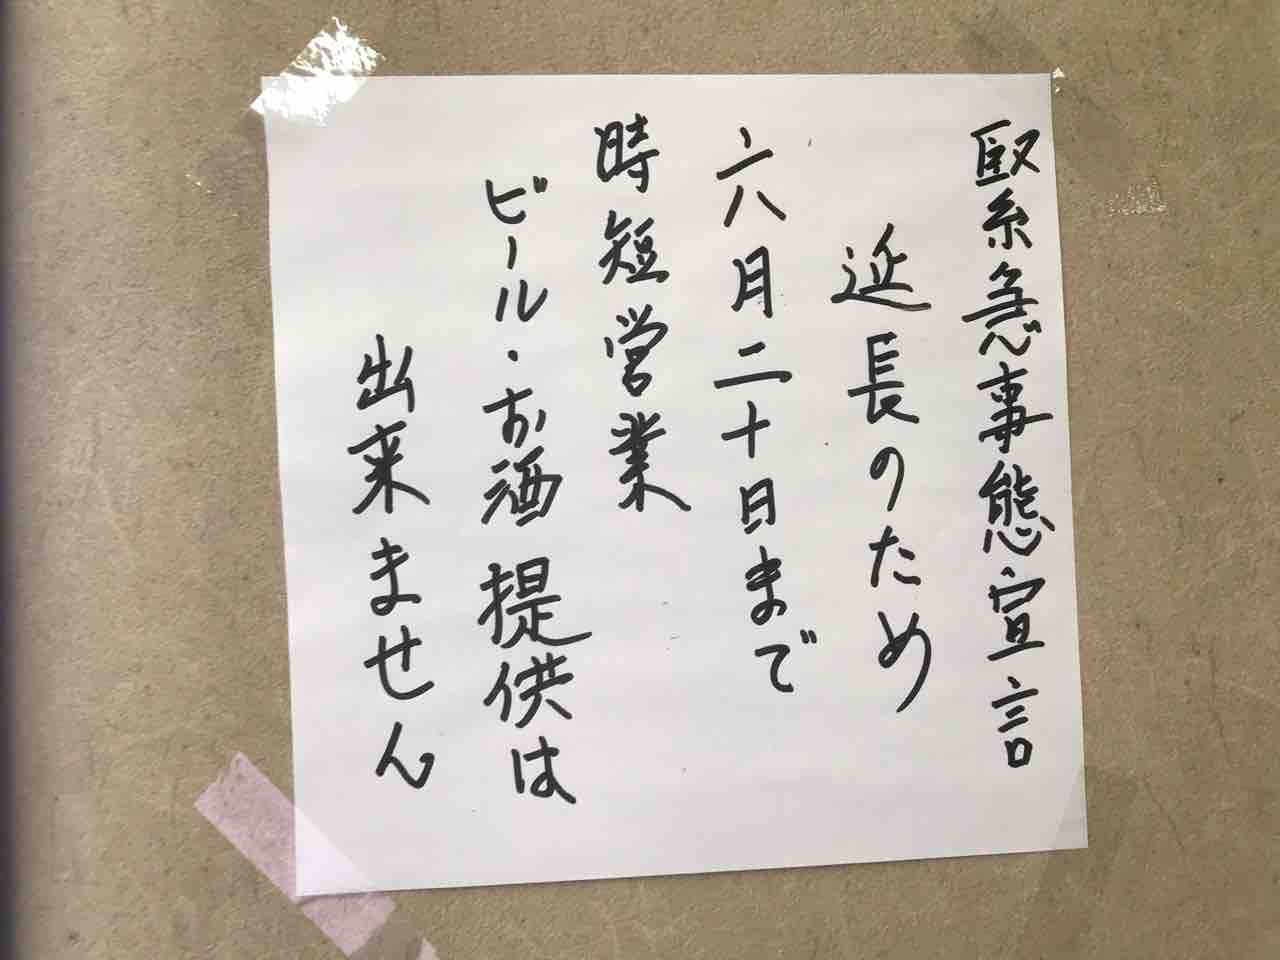 緊急事態宣言
延長のため
六月二十日まで
時短営業
ビール・お酒提供は
出来ません